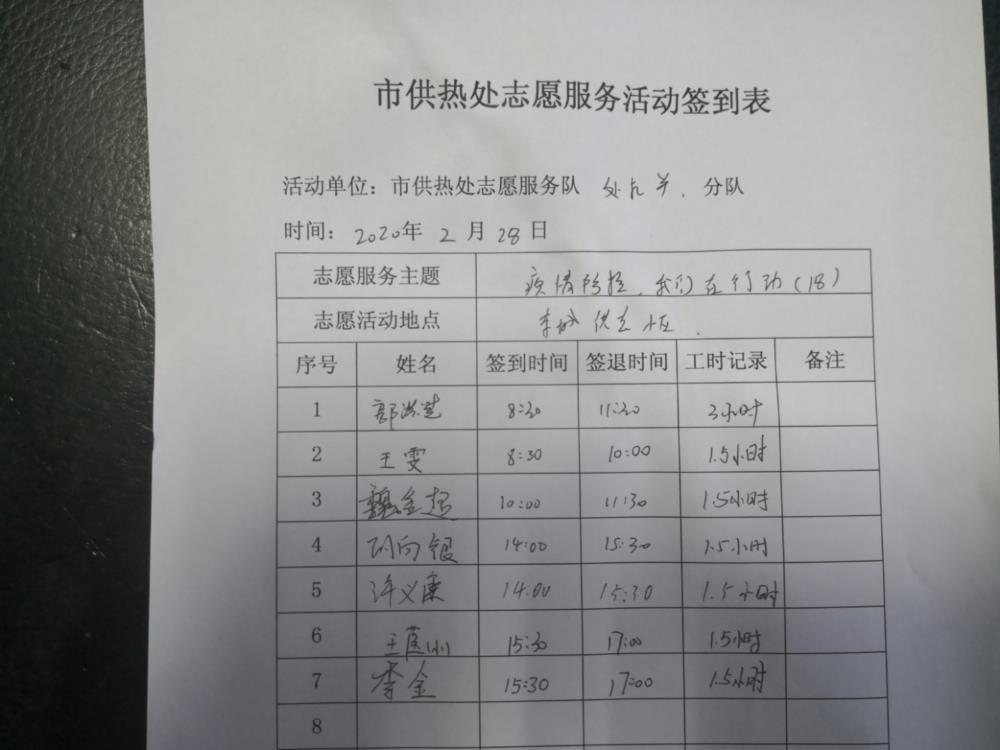 市供热处志愿服务活动签到表
活动单位：市供热处志愿服务队 处机关 分队
时间：2020年 2 月 28 日
志愿服务主题 疫情防控，我们在行动（18）
志愿活动地点 东城供
序号 姓名 签到时间 签退时间 工时记录 备注
1 郭 8:30 11:30 3小时
2 王雯 8:30 10:00 1.5小时
3 魏金超 10:00 11:30 1.5小时
4 向银 14:00 15:30 1.5小时
5 许义康 14:00 15:30 1.5小时
6 王 15:30 17:00 1.5小时
7 李金 15:30 17:00 1.5小时
8